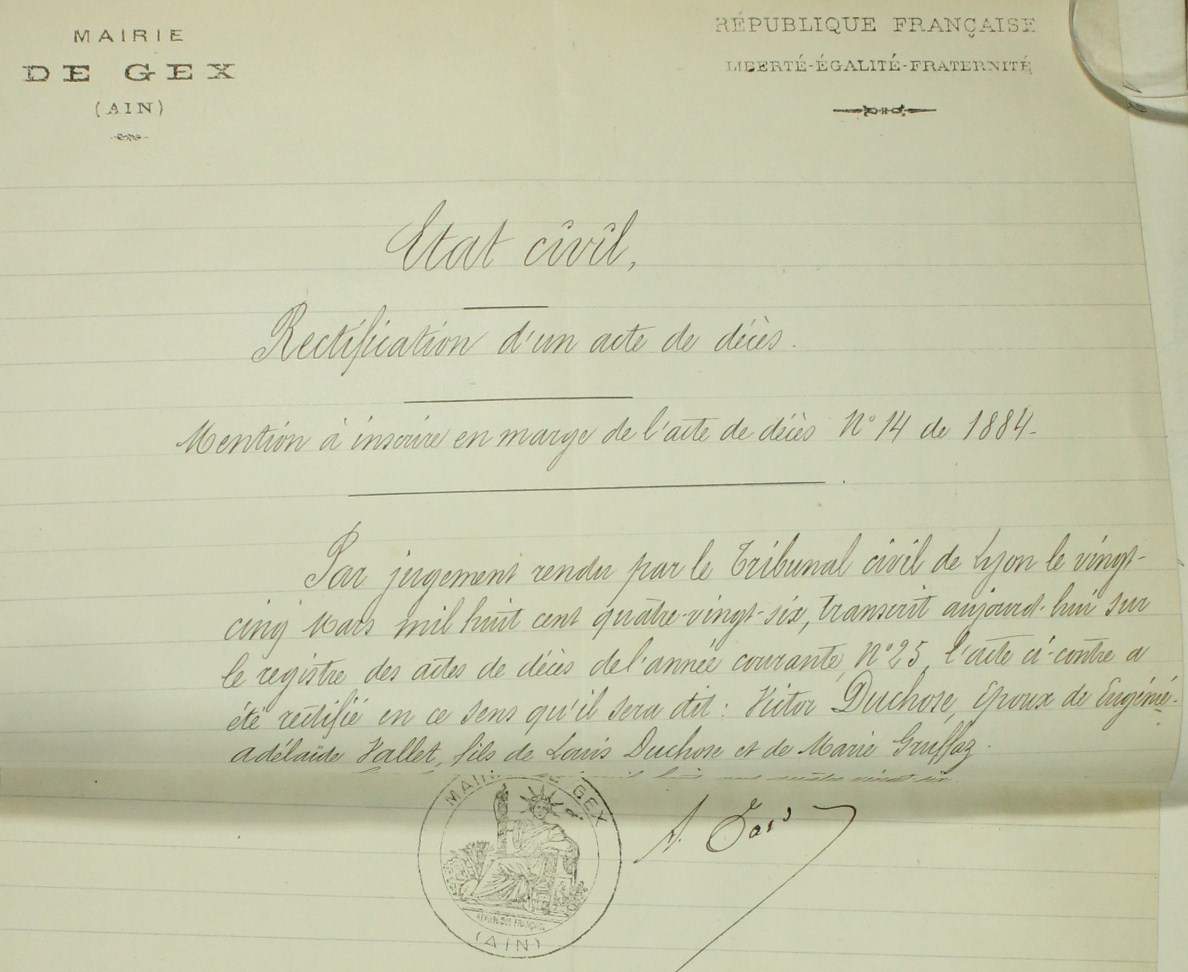 MAIRIE
DE GEX
(AIN)
RÉPUBLIQUE FRANÇAISE
LIBERTÉ-ÉGALITÉ-FRATERNITÉ
Etat civil,
Rectification d'un acte de décès.
Mention à inscrire en marge de l'acte de décès N° 14 de 1884-
Par jugement rendu par le Tribunal civil de Lyon le vingt-
cinq Mars mil huit cent quatre-vingt-six, transcrit aujourd-hui sur
le registre des actes de décès de l'année courante, N° 25, l'acte ci-contre a
été rectifié en ce sens qu'il sera dit: Victor Duchose, époux de Eugénie-
adélaïde Vallet, fils de Louis Duchose et de Marie Gruffaz.
MAIRIE DE GEX
(AIN)